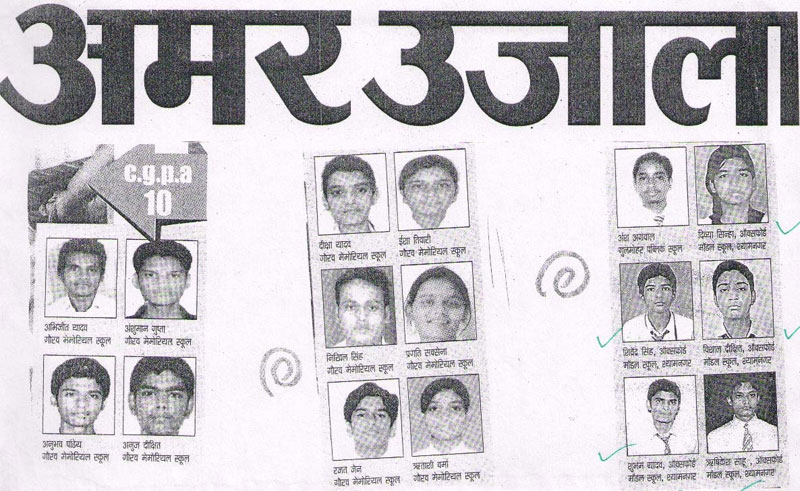 अमर उजाला
c.g.p.a
10
अभिजीत यादव
गौरव मेमोरियल स्कूल
अंशुमान गुप्ता
गौरव मेमोरियल स्कूल
अनुभव पांडेय
गौरव मेमोरियल स्कूल
अनुज दीक्षित
गौरव मेमोरियल स्कूल
दीक्षा यादव
गौरव मेमोरियल स्कूल
ईशा तिवारी
गौरव मेमोरियल स्कूल
निखिल सिंह
गौरव मेमोरियल स्कूल
प्रगति सक्सेना
गौरव मेमोरियल स्कूल
रजत जैन
गौरव मेमोरियल स्कूल
ऋताशी वर्मा
गौरव मेमोरियल स्कूल
अंश अग्रवाल
गुलमोहर पब्लिक स्कूल
दिव्या सिन्हा, ऑक्सफोर्ड
मॉडल स्कूल, श्यामनगर
शिवेंद्र सिंह, ऑक्सफोर्ड
मॉडल स्कूल, श्यामनगर
विशाल दीक्षित, ऑक्सफोर्ड
मॉडल स्कूल, श्यामनगर
शुभम यादव, ऑक्सफोर्ड
मॉडल स्कूल, श्यामनगर
ऋषिकेश साहू, ऑक्सफोर्ड
मॉडल स्कूल, श्यामनगर